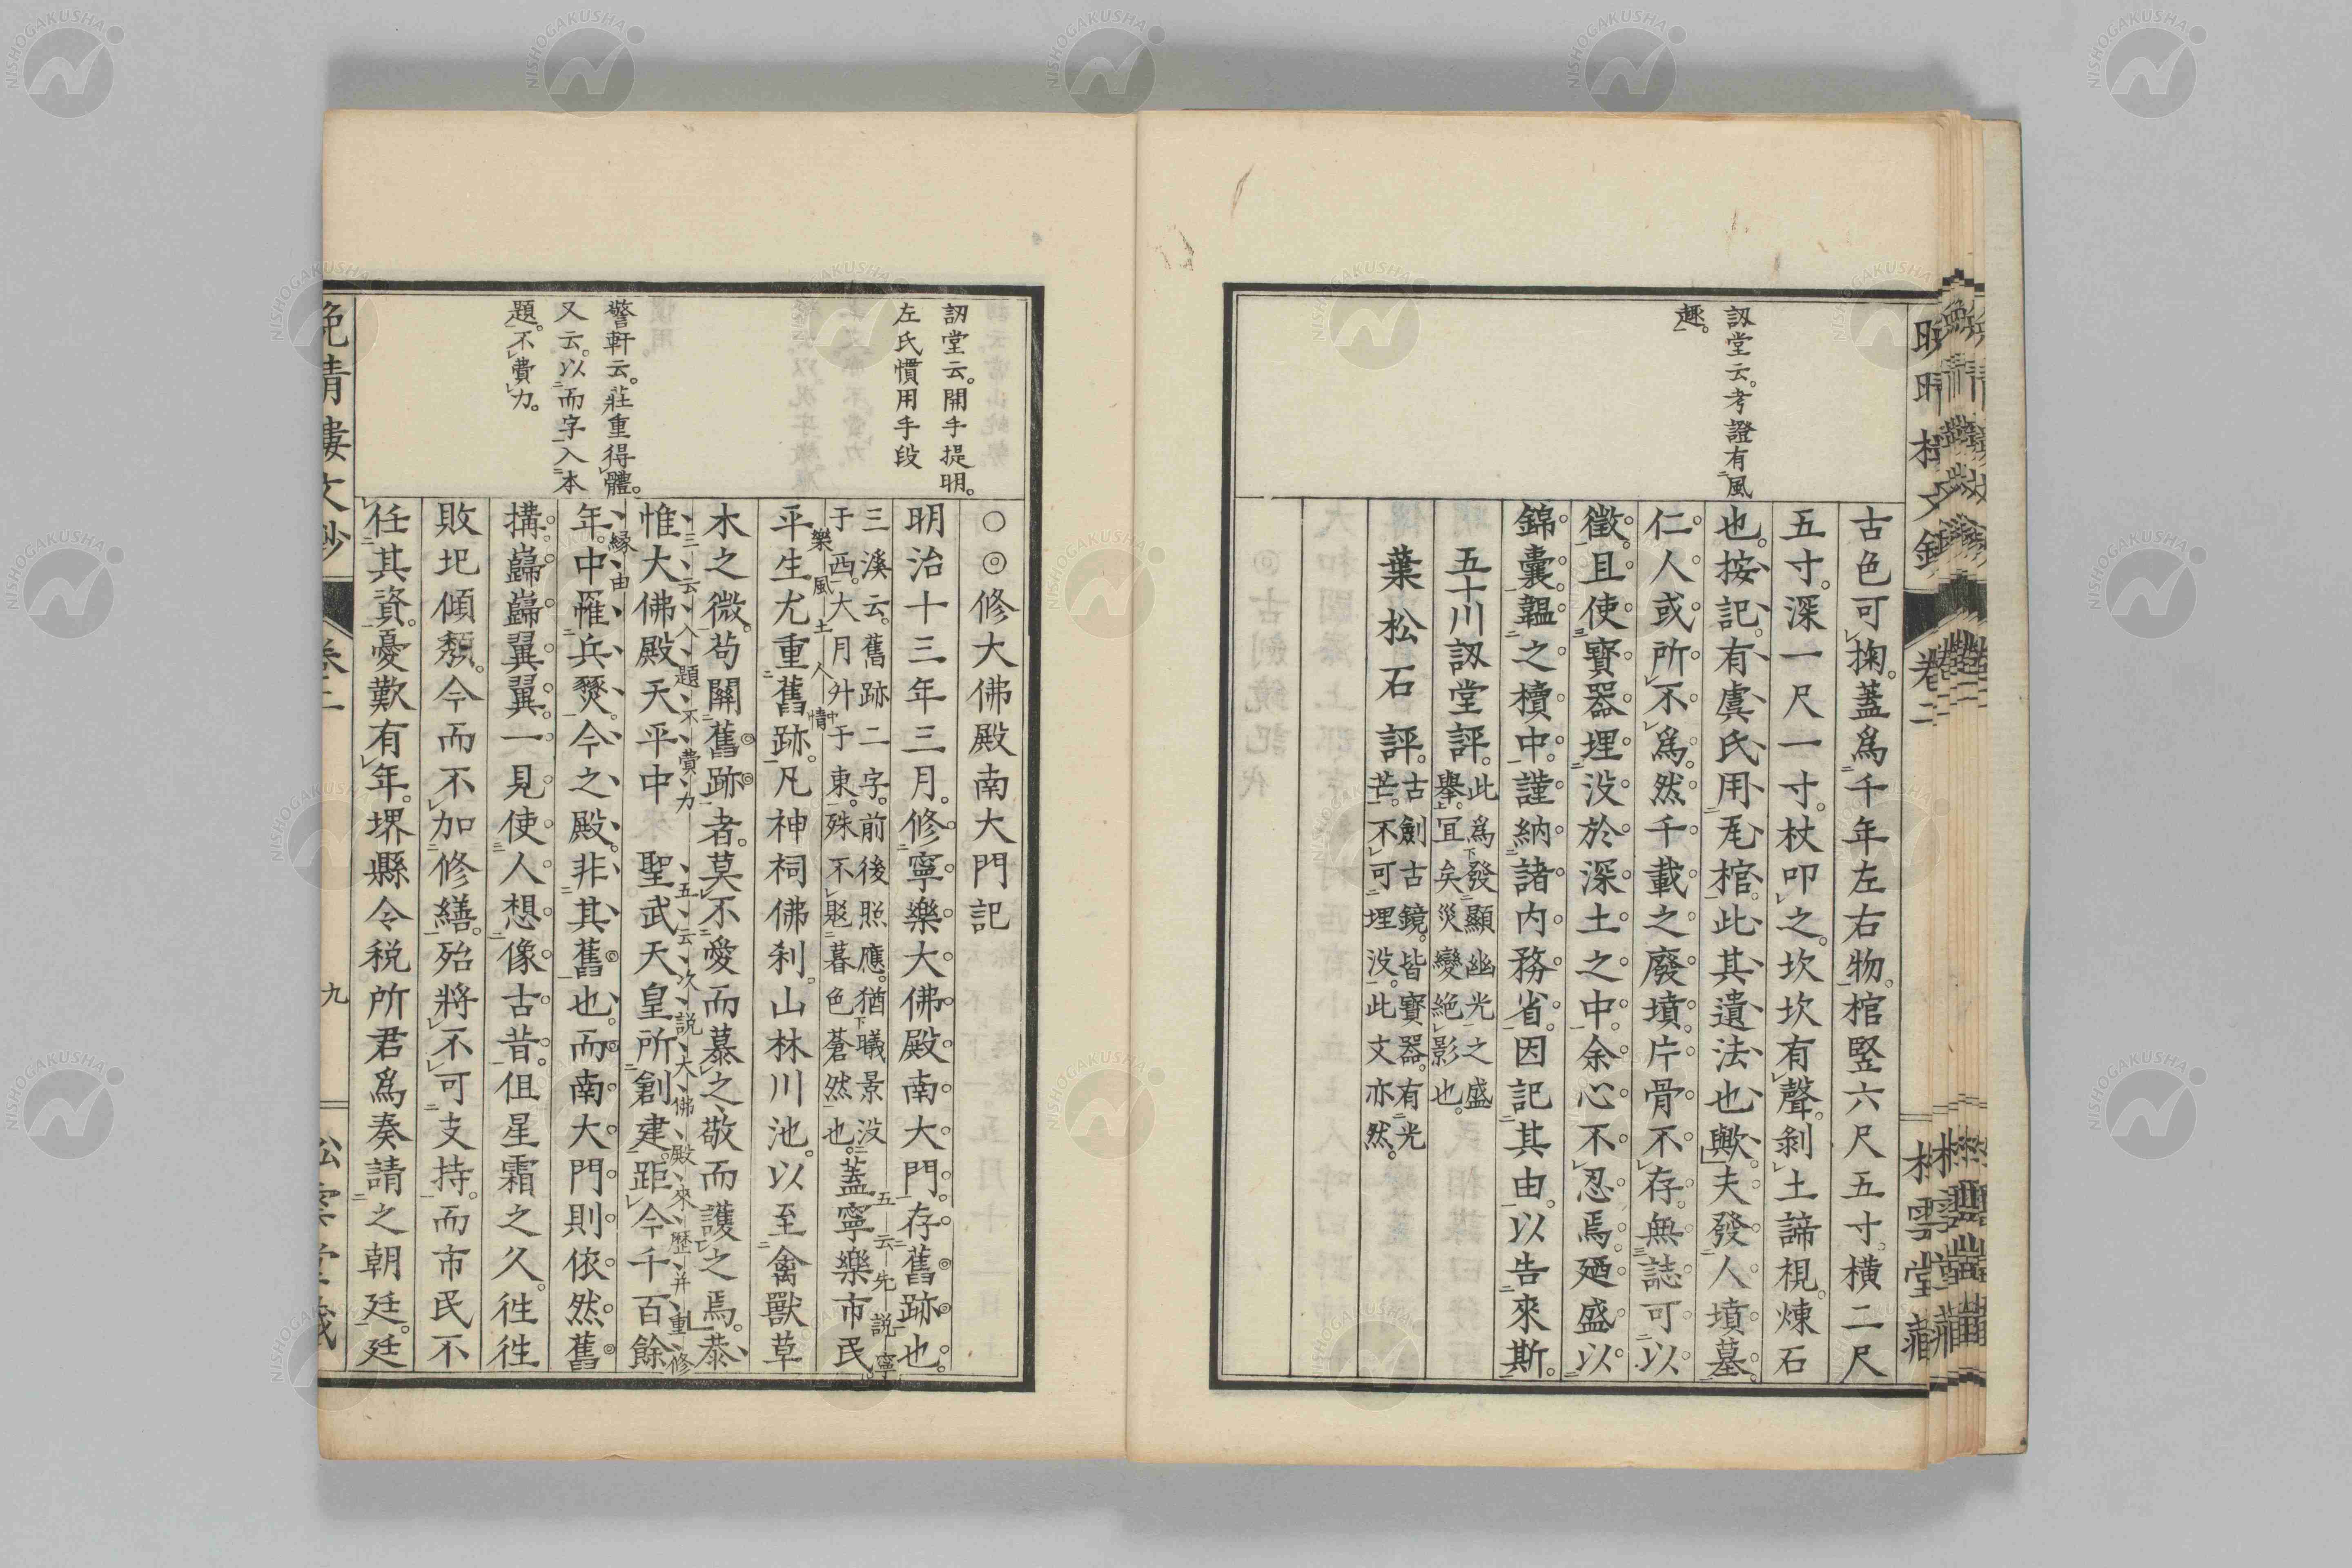 訒堂云。考證有風
趣。
古色可掬。蓋爲千年左右物。棺竪六尺五寸。橫二尺
五寸。深一尺一寸。杖叩之。坎坎有聲。剝土諦視。煉石
也。按記。有虞氏用瓦棺。此其遺法也歟。夫發人墳墓。
仁人或所不爲。然千載之廢墳。片骨不存。無誌可以
徵。且使寶器埋没於深土之中。余心不忍焉。廼盛以
錦囊。韞之櫝中。謹納諸内務省。因記其由。以告來斯。
五十川訒堂評。此爲發顯幽光之盛
擧。冝矣災變絶影也。
葉松石評。古劍古鏡。皆寶器。有光
芒。不可埋没。此文亦然。
訒堂云。開手提明。
左氏慣用手段
警軒云。莊重得體。
又云。以而字入本
題。不費力。
○◎修大佛殿南大門記
明治十三年三月。修寧樂大佛殿南大門。存舊跡也。
三溪云。舊跡二字。前後照應。猶曦景没
于西。大月升于東。殊不駭暮色蒼然也。
蓋寧樂市民
五云先説寧
樂風土人情
平生尤重舊跡。凡神祠佛刹。山林川池。以至禽獸草
木之微。苟關舊跡者。莫不愛而慕之敬而護之焉。恭
惟大佛殿天平中 聖武天皇所創建。距今千百餘
三云入題不費力
五云次説大佛殿來歴并重修
縁由
年。中罹兵燹。今之殿。非其舊也。而南大門則依然舊
搆。巋巋翼翼。一見使人想像古昔。但星霜之久。徃徃
敗圯傾頽。今而不加修繕。殆將不可支持。而市民不
任其資。憂歎有年。堺縣令税所君爲奏請之朝廷。廷
九